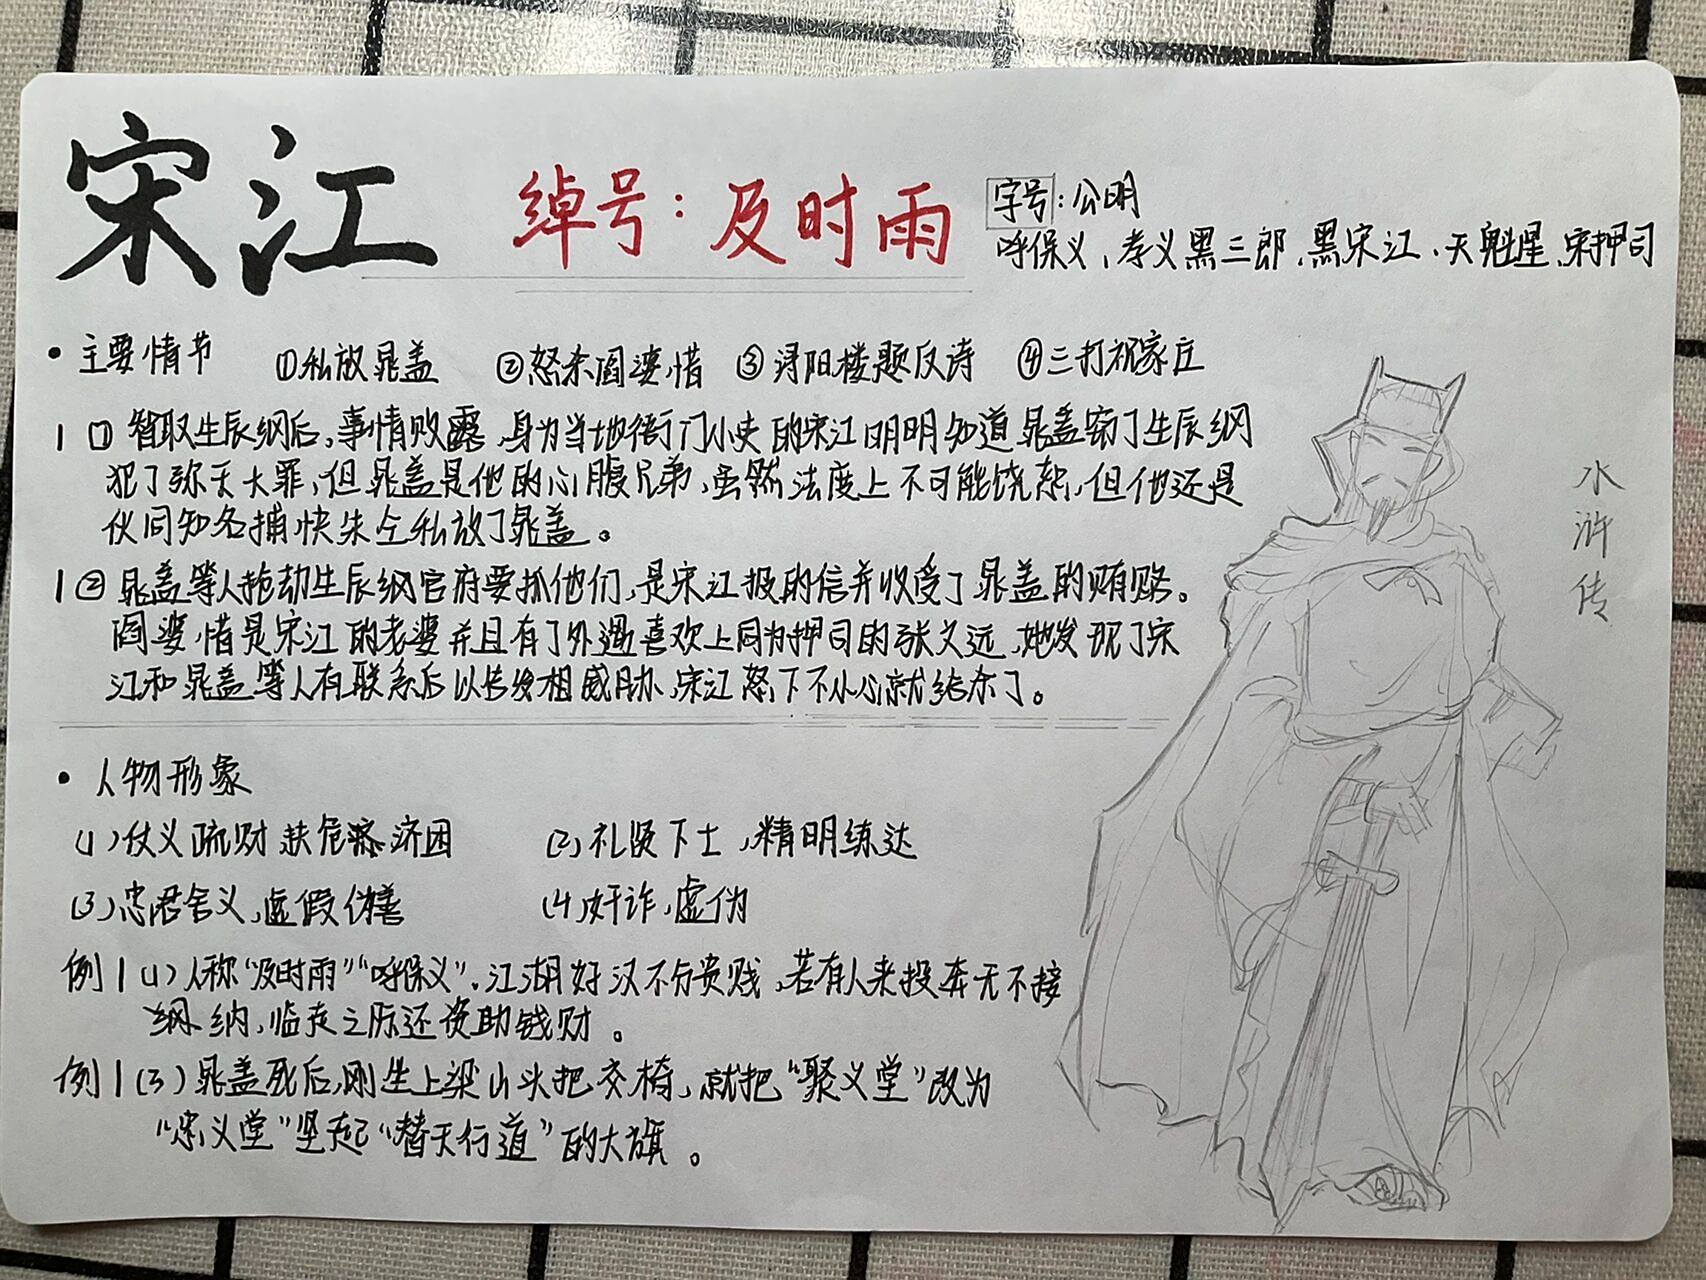 宋江 绰号：及时雨 字号：公明
呼保义、孝义黑三郎、黑宋江、天魁星、宋押司
• 主要情节 ①私放晁盖 ②怒杀阎婆惜 ③浔阳楼题反诗 ④三打祝家庄
1 ① 智取生辰纲后，事情败露，身为当地衙门小吏的宋江明明知道晁盖窃了生辰纲
犯了弥天大罪，但晁盖是他的心腹兄弟，虽然法度上不可能饶恕，但他还是
伙同知名捕快朱仝私放了晁盖。
1 ② 晁盖等人抢劫生辰纲官府要抓他们，是宋江报的信并收受了晁盖的贿赂。
阎婆惜是宋江的老婆并且有了外遇喜欢上同为押司的张文远，她发现了宋
江和晁盖等人有联系后以告发相威胁，宋江怒下不小心就给杀了。
• 人物形象
(1)仗义疏财 扶危济困 (2)礼贤下士，精明练达
(3)忠君舍义，虚假伪善 (4)奸诈，虚伪
例1(1)人称“及时雨”“呼保义”，江湖好汉不分贵贱，若有人来投奔无不接
纳，临走之际还资助钱财。
例1(3)晁盖死后，刚坐上梁山头把交椅，就把“聚义堂”改为
“忠义堂”竖起“替天行道”的大旗。
水浒传